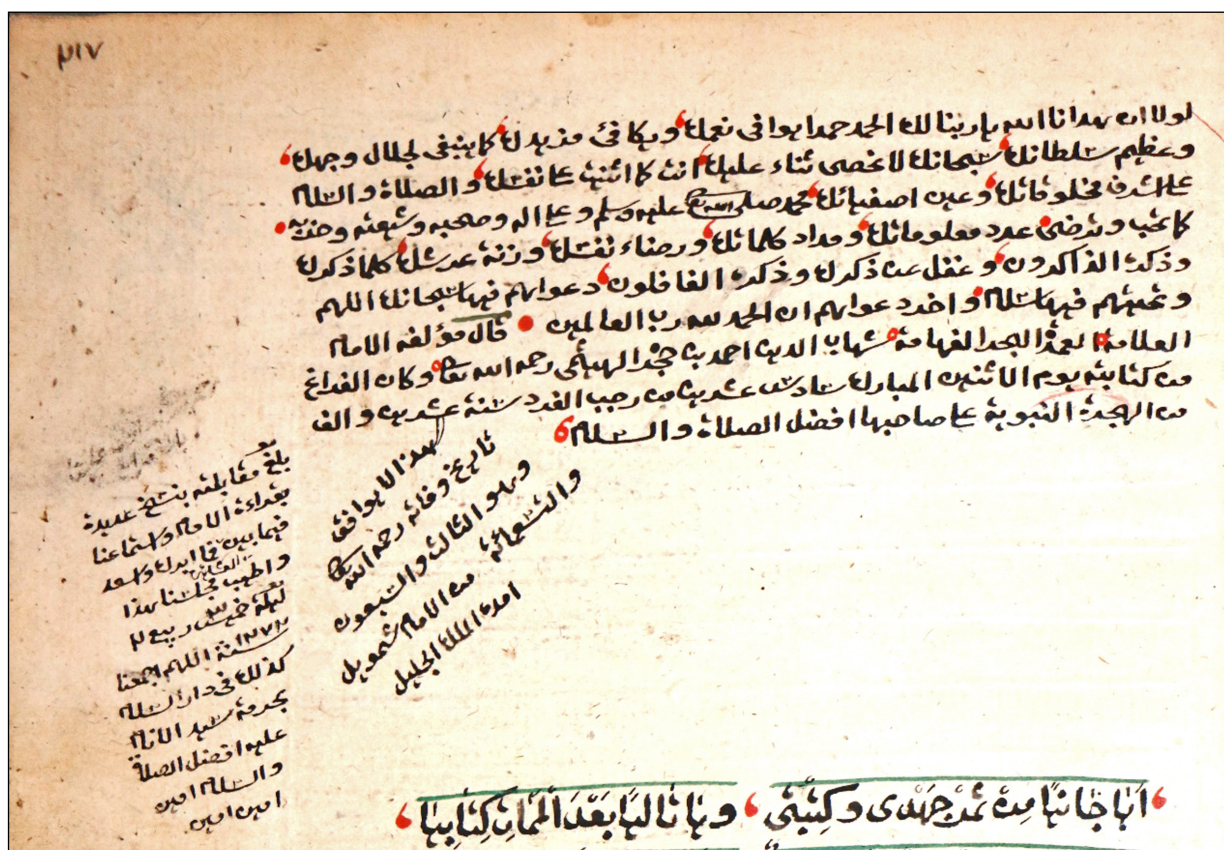 ٢١٧
لولا ان هدانا الله يا ربنا لك الحمد حمدا يوافى نعمك ويكافئ مزيدك كما ينبغى لجلال وجهك
وعظيم سلطانك سبحانك لا نحصى ثناء عليك انت كما اثنيت على نفسك والصلاة والسلام
على اشرف مخلوقاتك وعين اصفيائك محمد صلى الله عليه وسلم وعلى اله وصحبه وشيعته وحزبه
كما تحب وترضى عدد معلوماتك ومداد كلماتك ورضاء نفسك وزنة عرشك كلما ذكرك
وذكره الذاكرون وغفل عن ذكرك وذكره الغافلون دعواهم فيها سبحانك اللهم
وتحيتهم فيها سلام واخر دعواهم ان الحمد لله رب العالمين قال مؤلفه الامام
العلامة العمدة البحر الفهامة شهاب الدين احمد بن حجر الهيتمى رحمه الله تعالى وكان الفراغ
من كتابته يوم الاثنين المبارك سادس عشرين من رجب الفرد سنة عشرين والف
من الهجرة النبوية على صاحبها افضل الصلاة والسلام
هذا لا يوافق
تاريخ وفاته رحمه الله
وهو الثالث والسبعون
والتسعمائة
من الامام شمويل
امده الملك الجليل
بلغ مقابلته بنسخ عديدة
بقراءة الامام واستماعنا
فيما بين
واطيب مجلسنا هذا
ليلة خميس ربيع ٢
سنة ١٢٧٢ اللهم اجمعنا
كذلك فى دار السلام
بحرمة سيد الانام
عليه افضل الصلاة
والسلام امين
امين امين
وها تاليها بعد الممات كتابيها